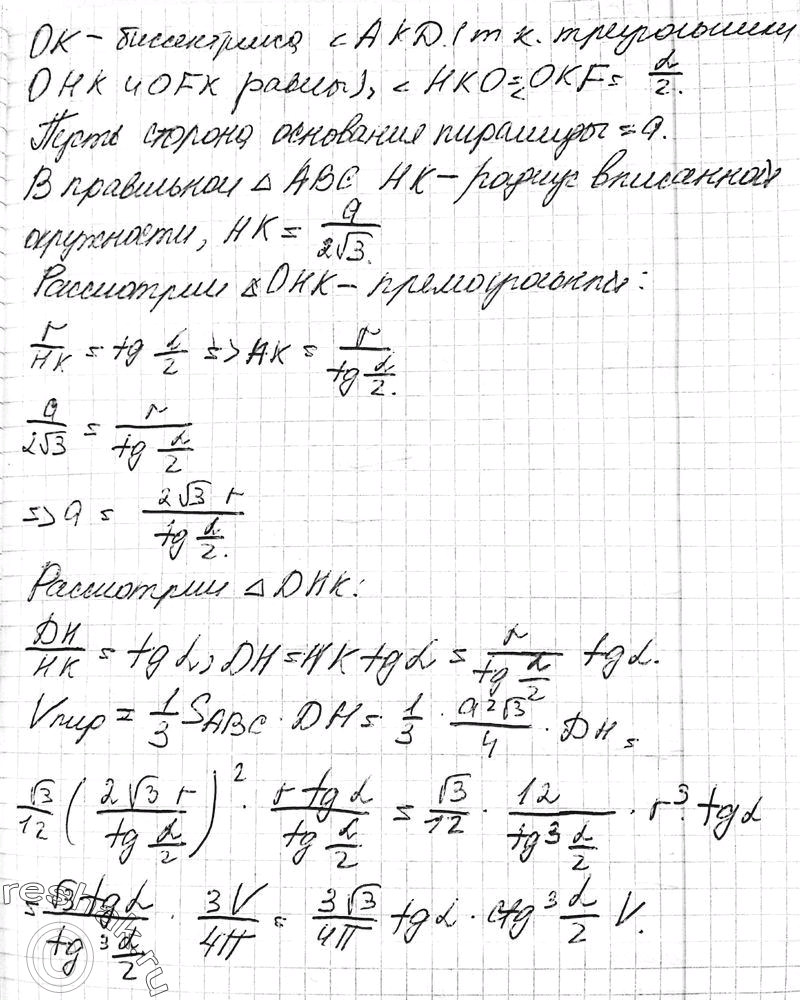 OK – биссектриса <AKD. (т к. треугольники
OHK и OFK равны), <HKO = <OKF = α/2.
Пусть сторона основания пирамиды = a.
В правильной △ABC HK – радиус вписанной
окружности, HK = a/(2√3).
Рассмотрим △OHK – прямоугольный:
r/HK = tg α/2 => AK = r/(tg α/2).
a/(2√3) = r/(tg α/2)
=> a = (2√3 r)/(tg α/2).
Рассмотрим △DHK:
DH/HK = tg α, DH = HK tg α = r/(tg α/2) tg α.
Vпир = 1/3 S_ABC · DH = 1/3 · (a²√3)/4 · DH =
√3/12 ((2√3 r)/(tg α/2))² · (r tg α)/(tg α/2) = √3/12 · 12/(tg³ α/2) · r³ · tg α
= (√3 tg α)/(tg³ α/2) · 3V/4π = 3√3/4π tg α · ctg³ α/2 V.
reshak.ru